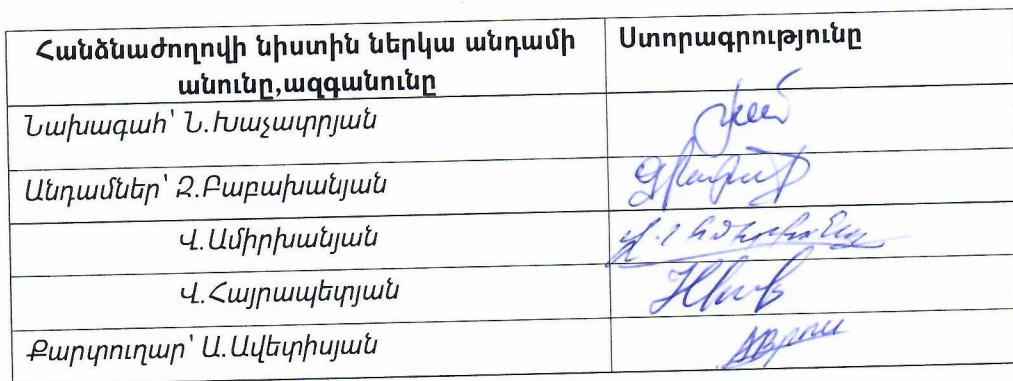 Հանձնաժողովի նիստին ներկա անդամի
անունը,ազգանունը
Ստորագրությունը
Նախագահ՝ Ն.Խաչատրյան
Անդամներ՝ Զ.Բաբախանյան
Վ.Ամիրխանյան
Վ.Հայրապետյան
Քարտուղար՝ Ա.Ավետիսյան